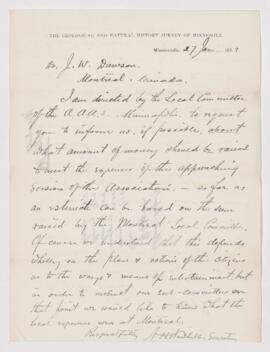 THE GEOLOGICAL AND NATURAL HISTORY SURVEY OF MINNESOTA
Minneapolis, 27 Jan 188
Dr. J. W. Dawson,
Montreal, Canada.
I am directed by the Local Committee
of the A.A.A.S. Minneapolis to request
you to inform us, if possible, about
what amount of money should be raised
to meet the expenses of the approaching
session of the Association, so far as
an estimate can be based on the sum
raised by the Montreal Local Committee.
Of course we understand that this depends
wholly on the plans & notions of the citizens
as to the ways & means of entertainment, but
in order to instruct our sub-committee on
that point we would like to know what the
local expenses were at Montreal.
Respectfully,